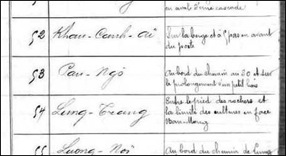 en aval d'une cascade
52 Khau-Canh-
Sur la berge et à
du poste
53 Pan-Ngô
Au bord du chemin au 20 et sur
le prolongement d'un petit bois
54 Lung-Trang
Entre le pied des rochers et
la limite des cultures en face
55 Luong-Noi
Au bord du chemin de Lung